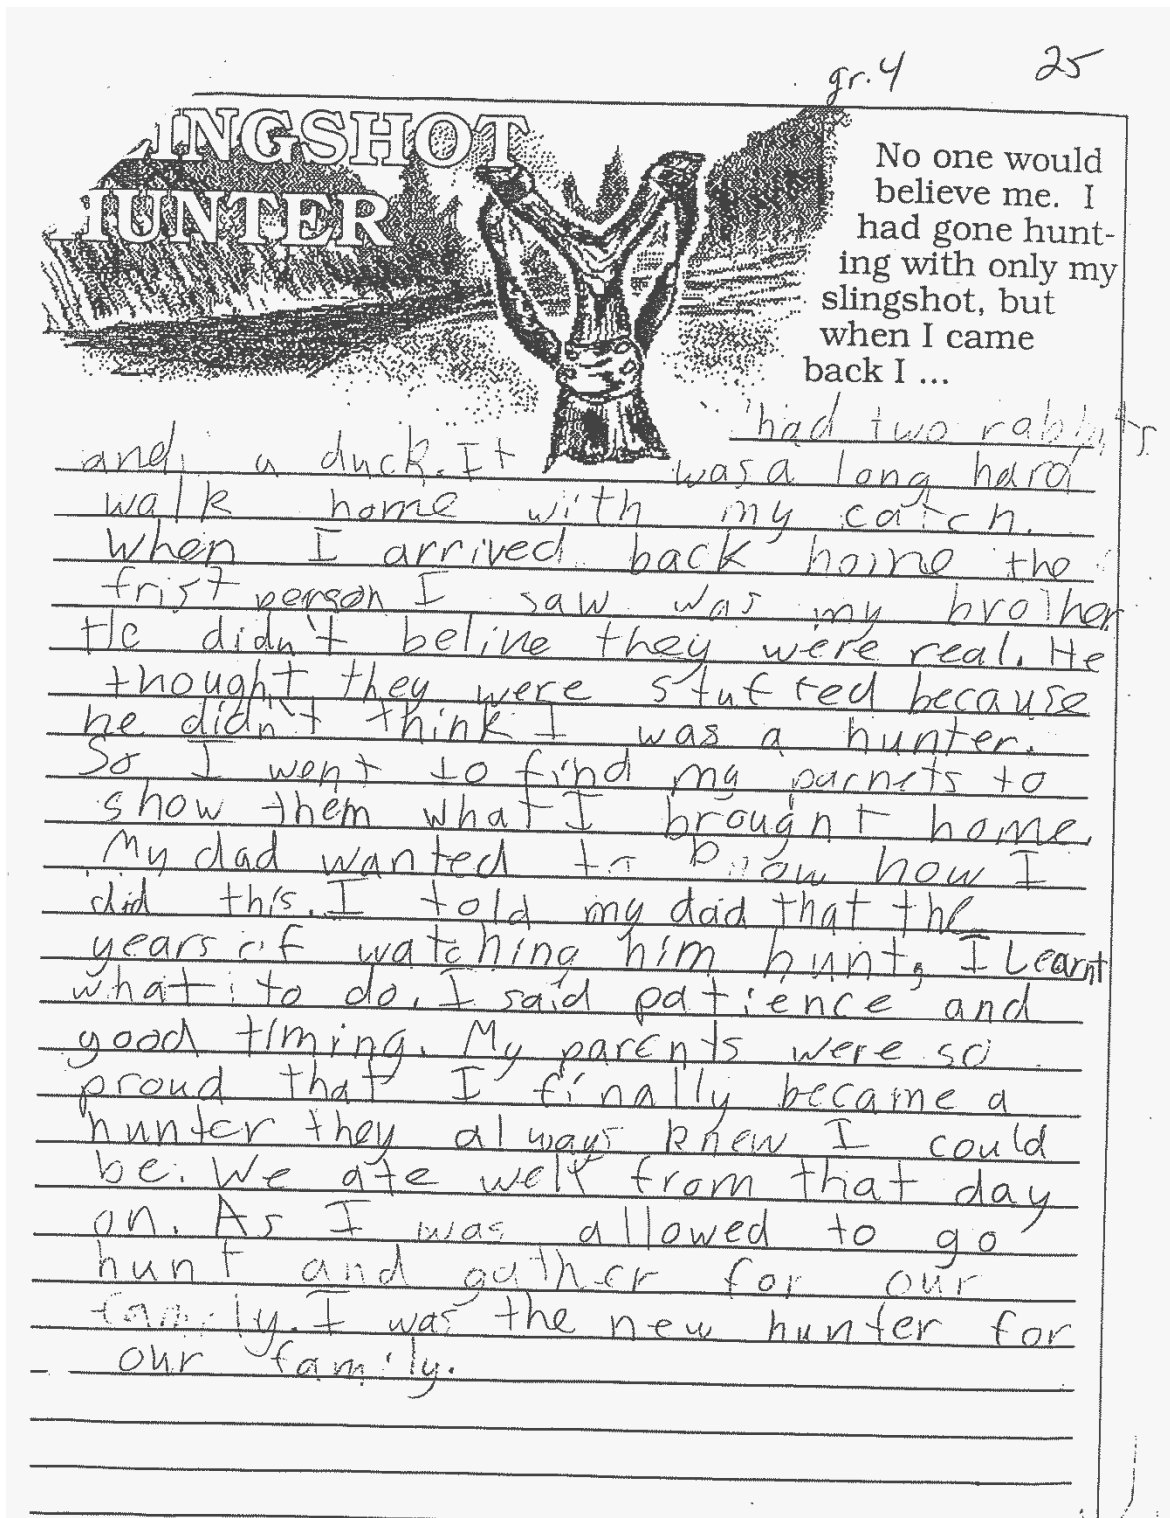 gr. 4 25
LINGSHOT
HUNTER
No one would
believe me. I
had gone hunt-
ing with only my
slingshot, but
when I came
back I ...
had two rabbits
and a duck. It was a long hard
walk home with my catch.
When I arrived back home the
frist person I saw was my brother
He didn't beline they were real. He
thought they were stuffed because
he didn't think I was a hunter.
So I went to find my parnets to
show them what I brought home.
My dad wanted to know how I
did this. I told my dad that the
years of watching him hunt, I Learnt
what to do. I said patience and
good timing. My parents were so
proud that I finally became a
hunter they always knew I could
be. We ate well from that day
on. As I was allowed to go
hunt and gather for our
family. I was the new hunter for
our family.